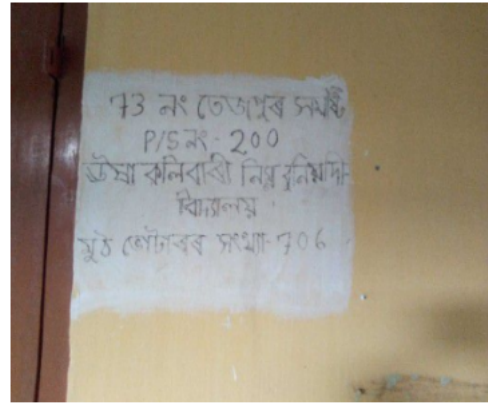 73 নং তেজপুৰ সমষ্টি
P/S নং - 200
ঊষা কলিবাৰী নিম্ন বুনিয়াদী
বিদ্যালয়
মুঠ ভোটাৰৰ সংখ্যা - 706